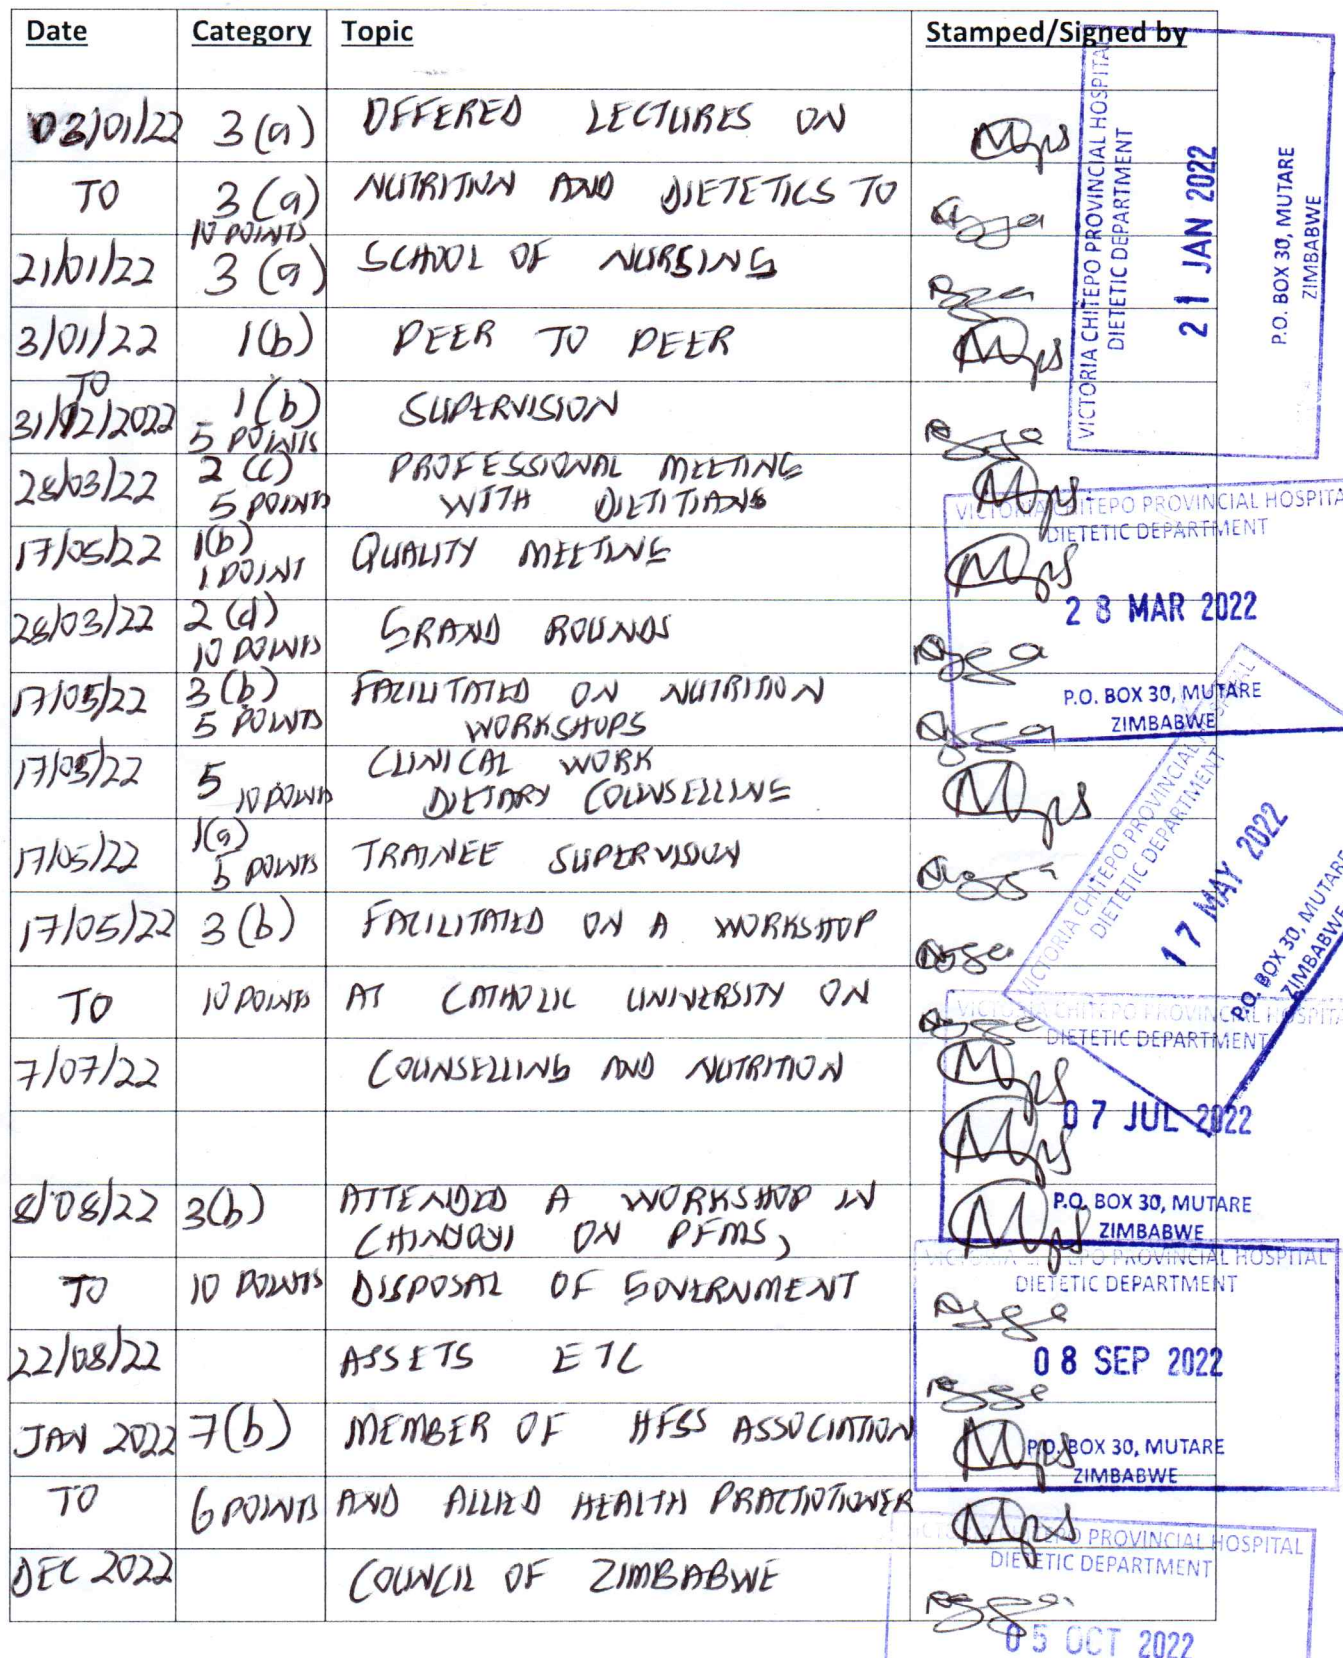 Date Category Topic Stamped/Signed by
03/01/22 3(a) OFFERED LECTURES ON
TO 3(a) NUTRITION AND DIETETICS TO
10 POINTS
21/01/22 3(a) SCHOOL OF NURSING
3/01/22 1(b) PEER TO PEER
TO
31/12/2022 1(b) SUPERVISION
5 POINTS
28/03/22 2(c) PROFESSIONAL MEETING
5 POINTS WITH DIETITIANS
17/05/22 1(b) QUALITY MEETING
1 POINT
28/03/22 2(d) GRAND ROUNDS
10 POINTS
17/05/22 3(b) FACILITATED ON NUTRITION
5 POINTS WORKSHOPS
17/05/22 5 CLINICAL WORK
10 POINTS DIETARY COUNSELLING
17/05/22 1(a) TRAINEE SUPERVISION
5 POINTS
17/05/22 3(b) FACILITATED ON A WORKSHOP
TO 10 POINTS AT CATHOLIC UNIVERSITY ON
7/07/22 COUNSELLING AND NUTRITION
8/08/22 3(b) ATTENDED A WORKSHOP IN
CHINHOYI ON PFMS,
TO 10 POINTS DISPOSAL OF GOVERNMENT
22/08/22 ASSETS ETC
JAN 2022 7(b) MEMBER OF HFSS ASSOCIATION
TO 6 POINTS AND ALLIED HEALTH PRACTITIONER
DEC 2022 COUNCIL OF ZIMBABWE
VICTORIA CHITEPO PROVINCIAL HOSPITAL
DIETETIC DEPARTMENT
21 JAN 2022
P.O. BOX 30, MUTARE
ZIMBABWE
VICTORIA CHITEPO PROVINCIAL HOSPITA
DIETETIC DEPARTMENT
28 MAR 2022
P.O. BOX 30, MUTARE
ZIMBABWE
VICTORIA CHITEPO PROVINCIAL HOSPITAL
DIETETIC DEPARTMENT
17 MAY 2022
P.O. BOX 30, MUTARE
ZIMBABWE
VICTORIA CHITEPO PROVINCIAL HOSPITA
DIETETIC DEPARTMENT
07 JUL 2022
P.O. BOX 30, MUTARE
ZIMBABWE
VICTORIA CHITEPO PROVINCIAL HOSPITAL
DIETETIC DEPARTMENT
08 SEP 2022
P.O. BOX 30, MUTARE
ZIMBABWE
VICTORIA CHITEPO PROVINCIAL HOSPITAL
DIETETIC DEPARTMENT
05 OCT 2022